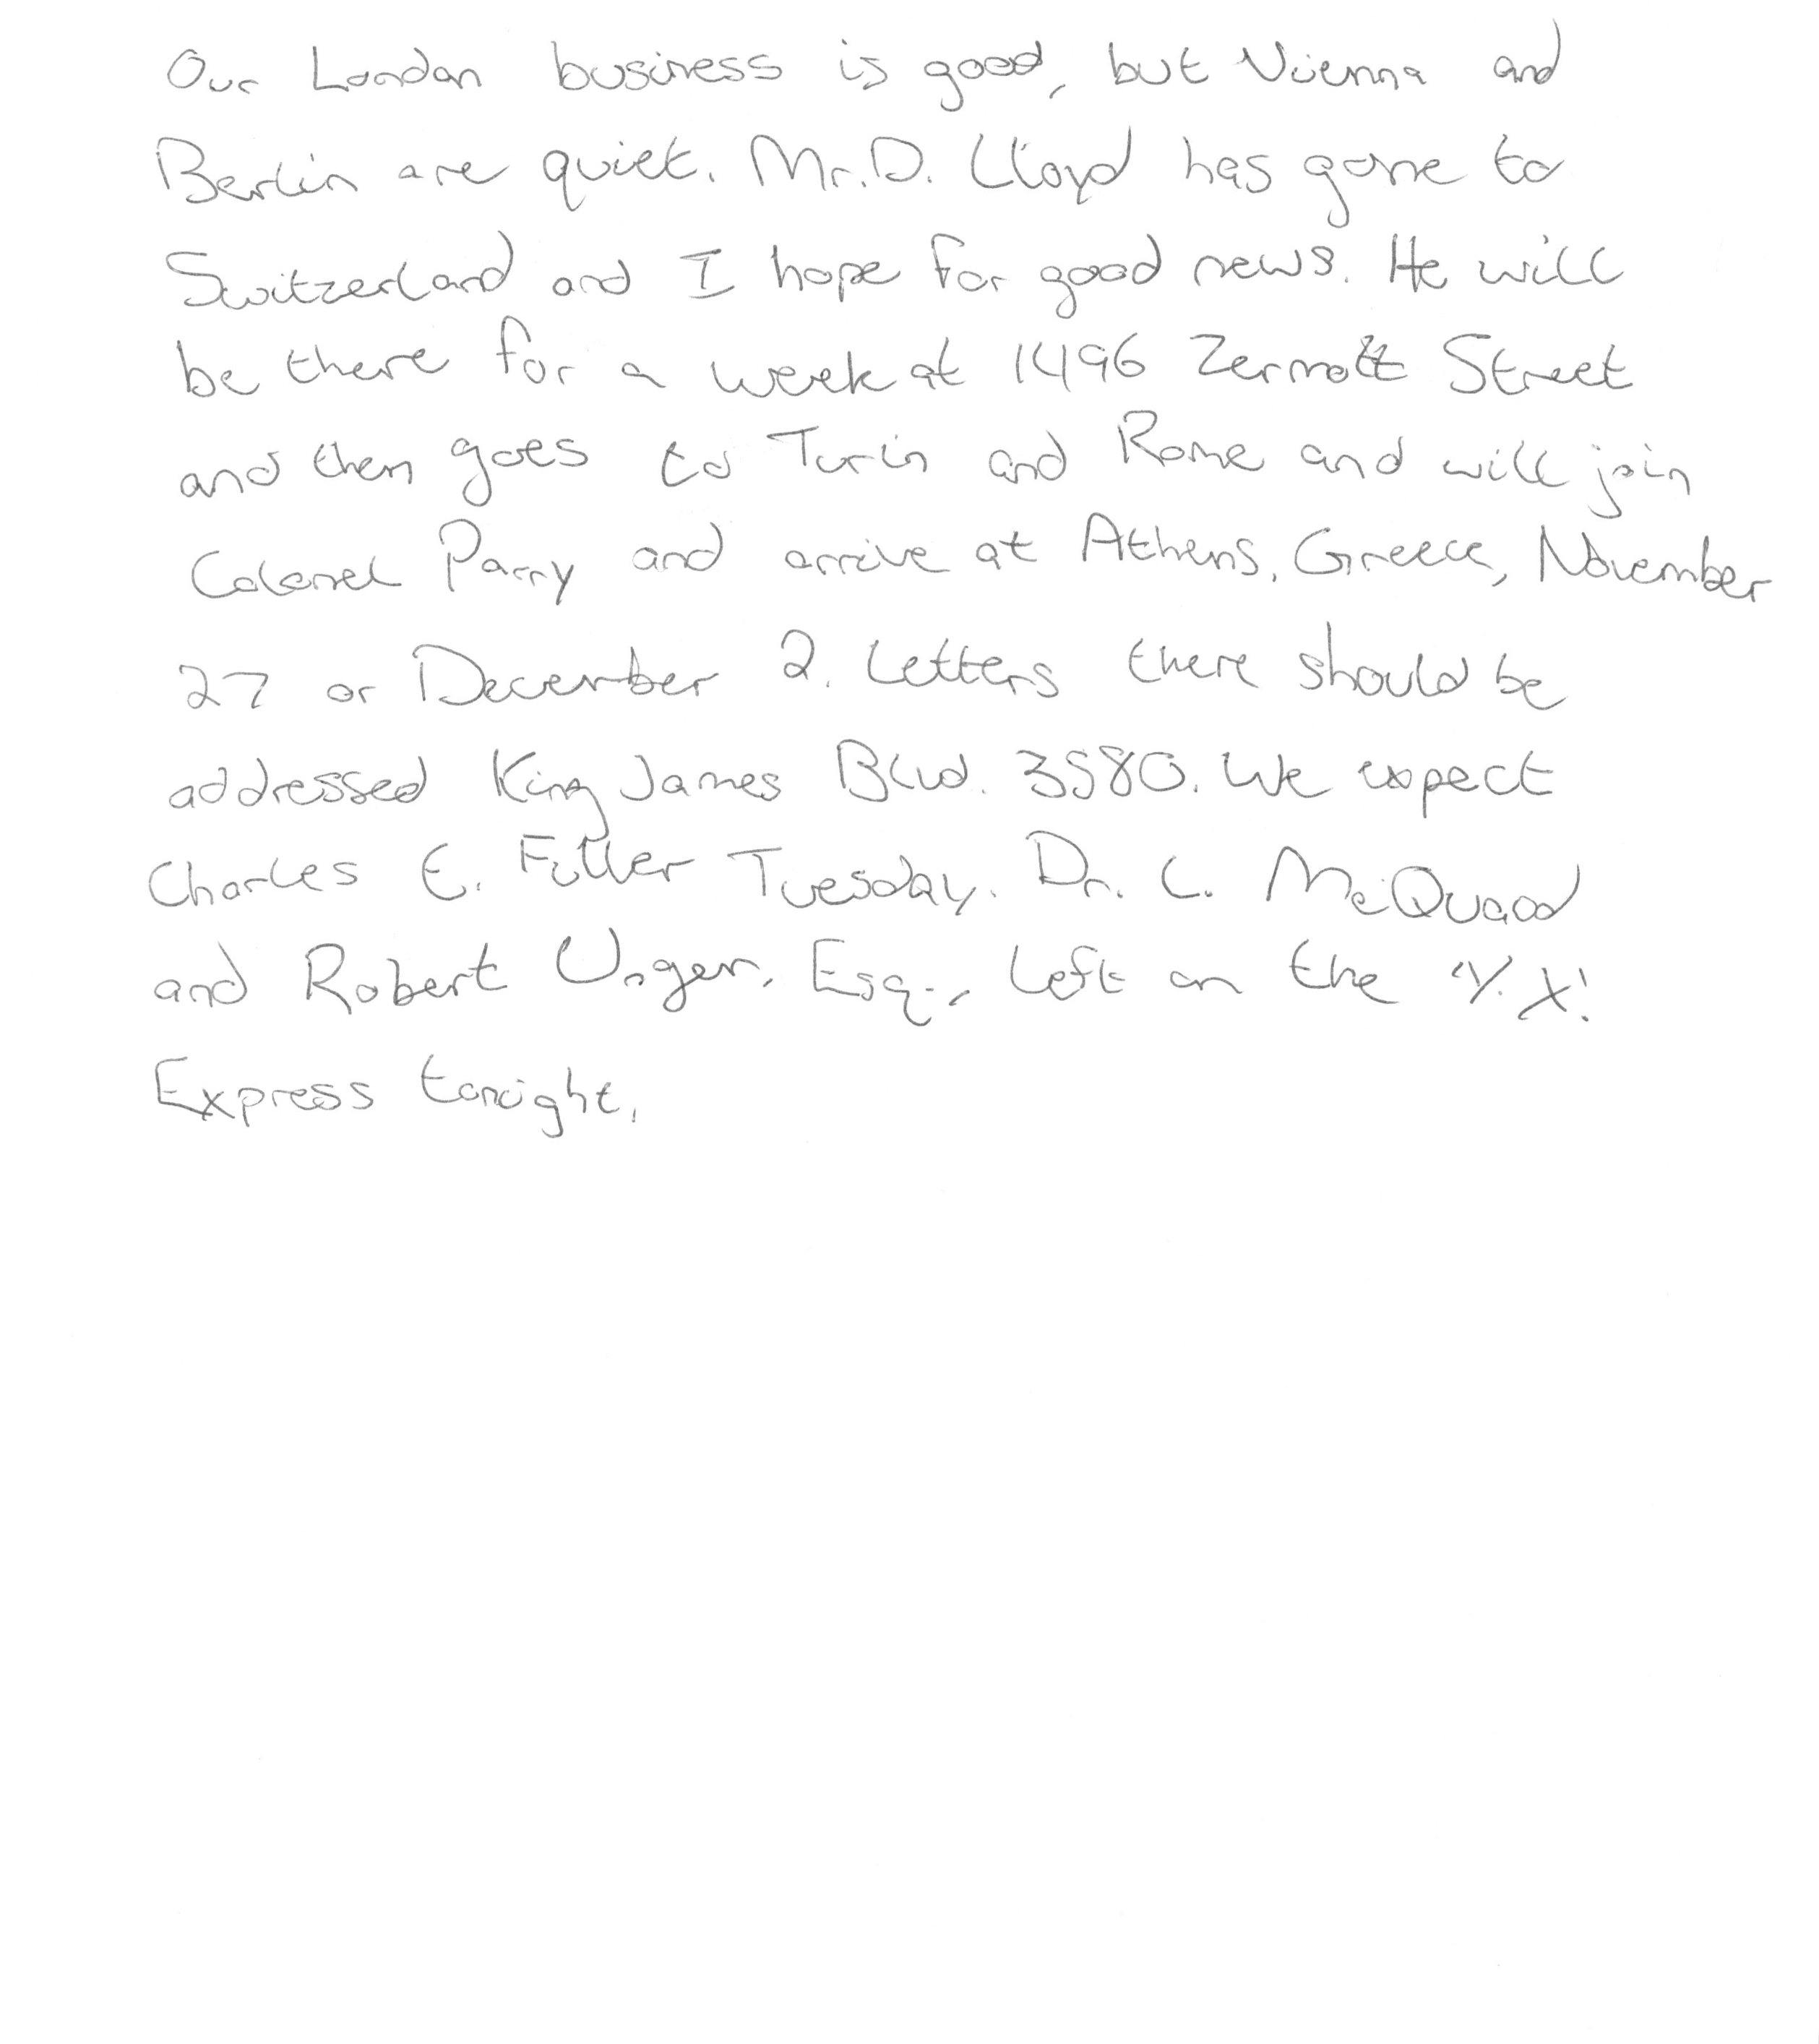 Our London business is good, but Vienna and
Berlin are quiet. Mr. D. Lloyd has gone to
Switzerland and I hope for good news. He will
be there for a week at 1496 Zermott Street
and then goes to Turin and Rome and will join
Colonel Parry and arrive at Athens, Greece, November
27 or December 2. Letters there should be
addressed King James Blvd. 3580. We expect
Charles E. Fuller Tuesday. Dr. L. McQuaid
and Robert Unger, Esq., left on the "Y. X.'
Express tonight.